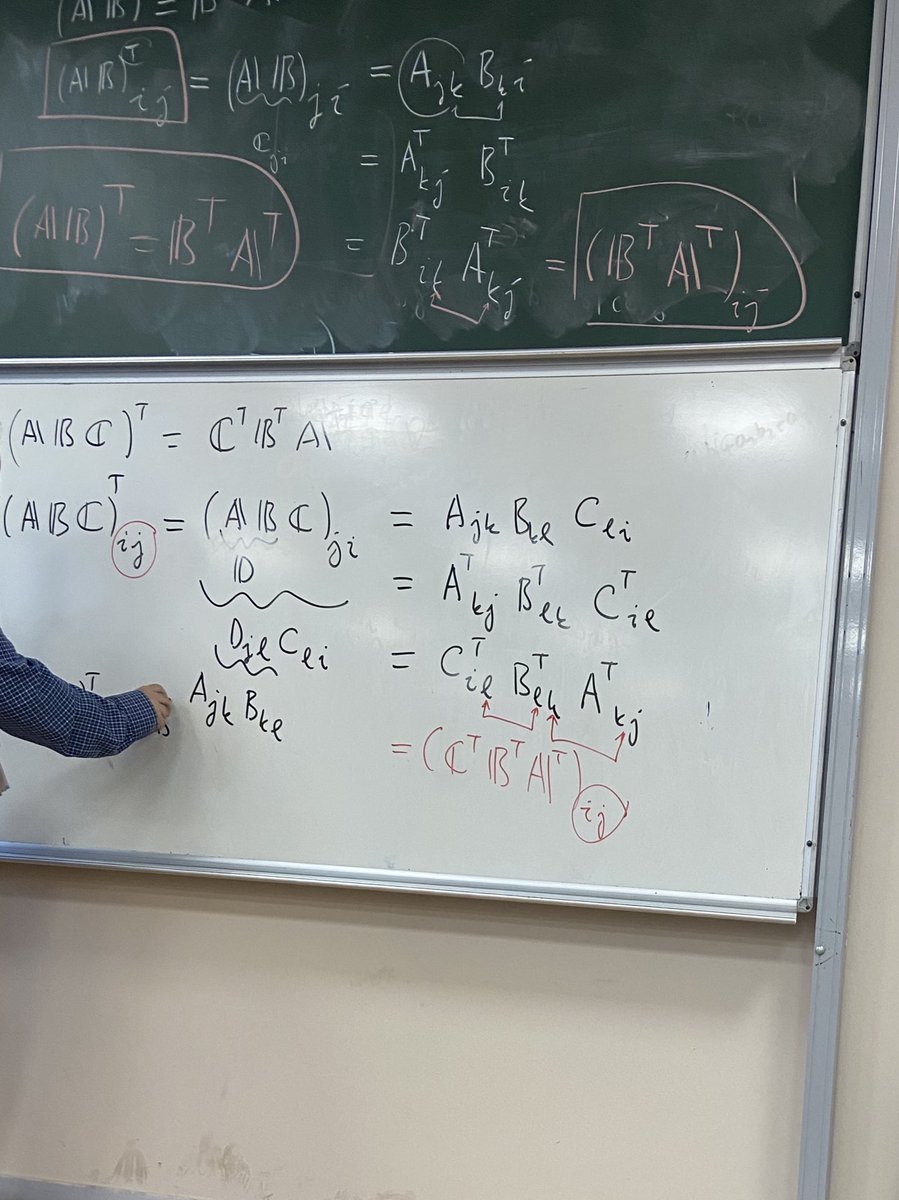 (𝔸𝔹) = 𝔹
(𝔸𝔹)ᵀ_ij = (𝔸𝔹)_ji = A_jk B_ki
ℂ_ji
= Aᵀ_kj Bᵀ_ik
(𝔸𝔹)ᵀ = 𝔹ᵀ 𝔸ᵀ
= Bᵀ_ik Aᵀ_kj = (𝔹ᵀ 𝔸ᵀ)_ij
(𝔸 𝔹 ℂ)ᵀ = ℂᵀ 𝔹ᵀ 𝔸
(𝔸 𝔹 ℂ)ᵀ_ij = (𝔸 𝔹 ℂ)_ji = A_jk B_kℓ C_ℓi
𝔻
= Aᵀ_kj Bᵀ_ℓk Cᵀ_iℓ
D_jℓ C_ℓi
= Cᵀ_iℓ Bᵀ_ℓk Aᵀ_kj
A_jk B_kℓ
= (ℂᵀ 𝔹ᵀ 𝔸ᵀ)_ij